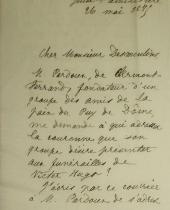 26 mai 1885
Cher Monsieur Desmoulins
M. Pardoux, de Clermont-
Ferrand, fondateur d'un
groupe des amis de la
paix du Puy de Dôme,
me demande à qui adresser
la couronne que son
groupe désire présenter
aux funérailles de
Victor Hugo?
J'écris par ce courrier
à M. Pardoux de s'adres